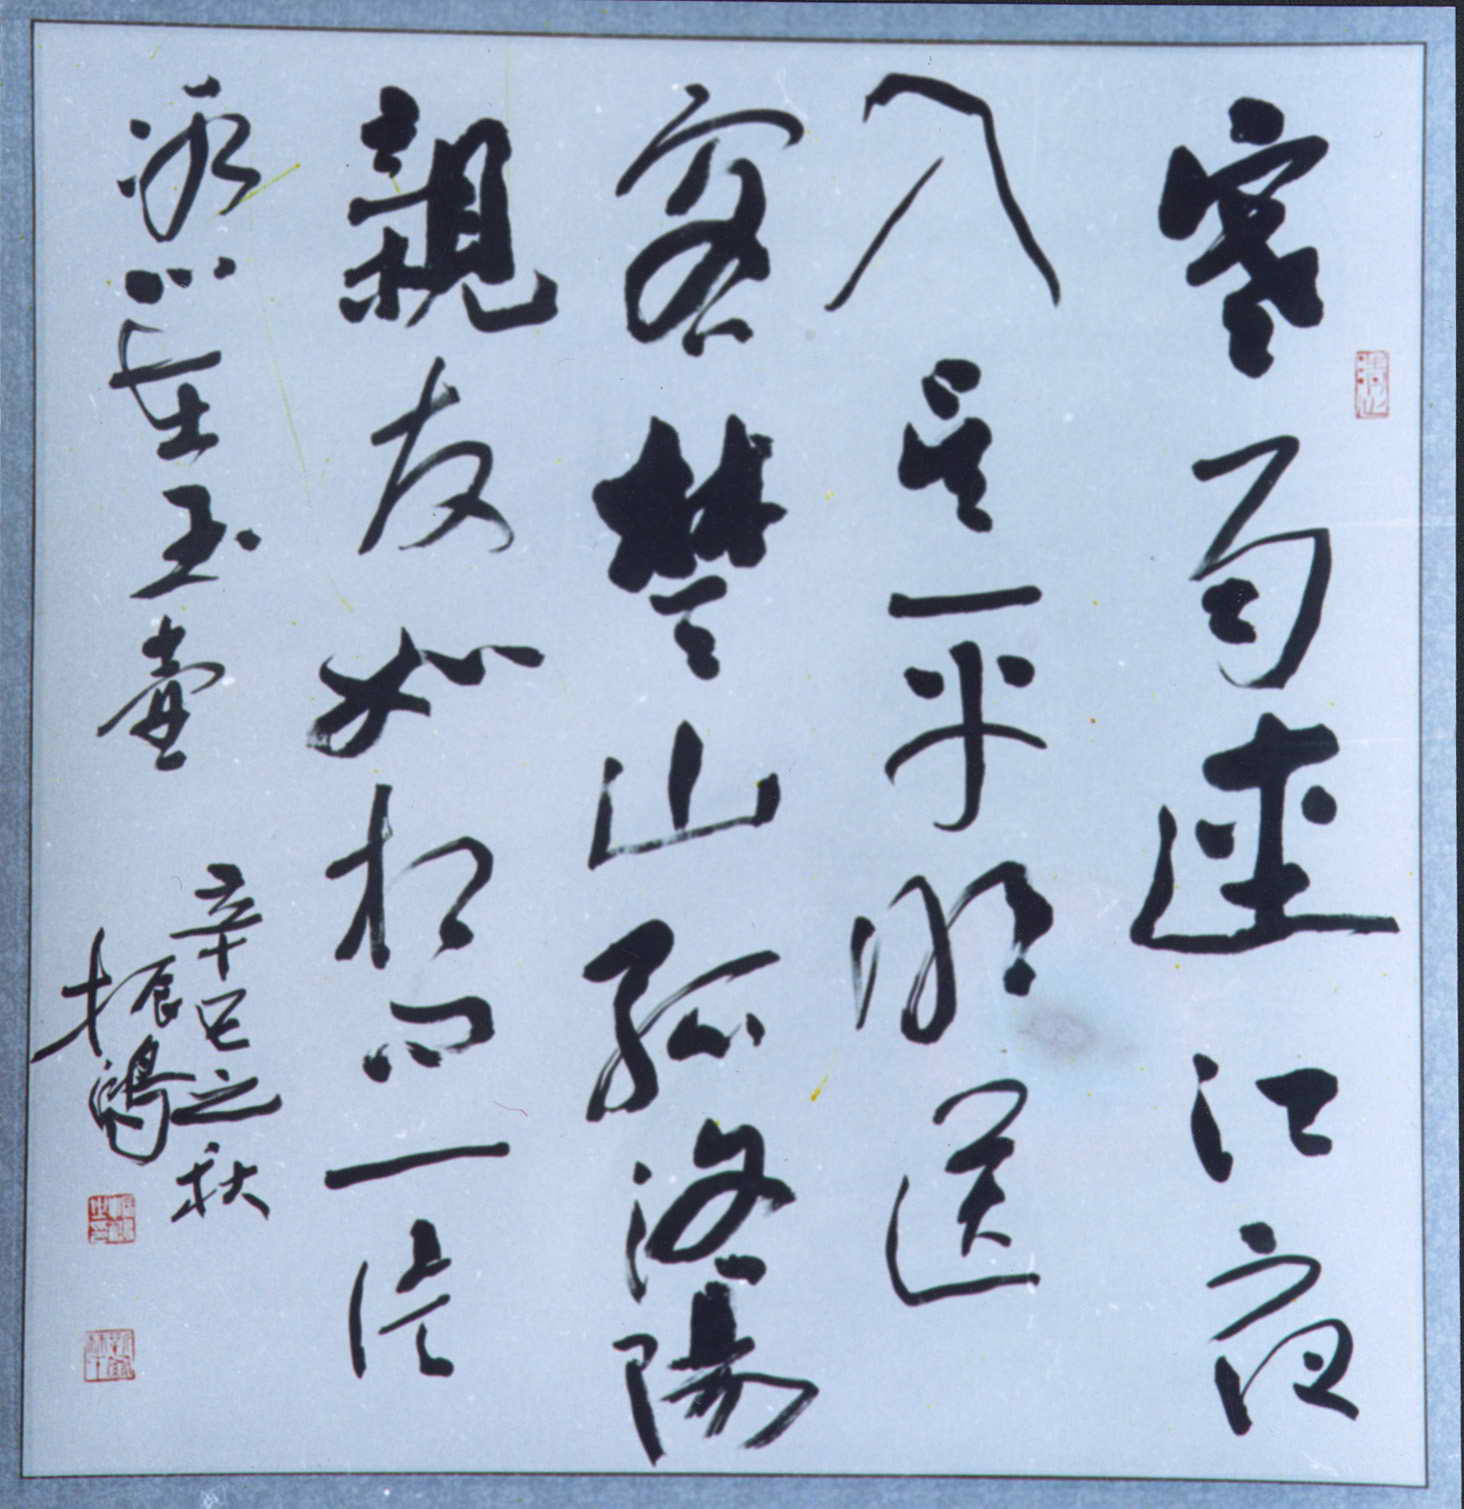 寒雨連江夜
入吴平明送
客楚山孤洛陽
親友如相问一片
冰心在玉壺
辛巳之秋
振